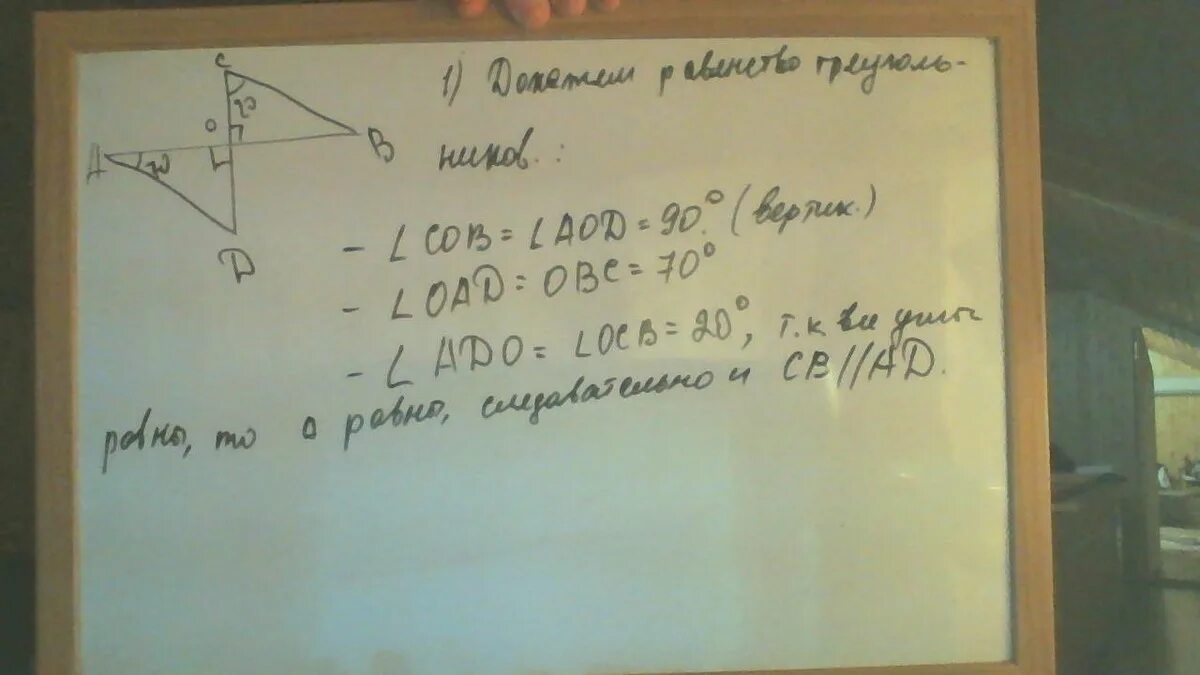 1) Докажем равенство треуголь-
ников.:
- ∠COB = ∠AOD = 90° (вертик.)
- ∠OAD = OBC = 70°
- ∠ADO = ∠OCB = 20°, т.к все углы
равны, то △ равны, следавательно и CB//AD.
C
20
O
A
70
B
D